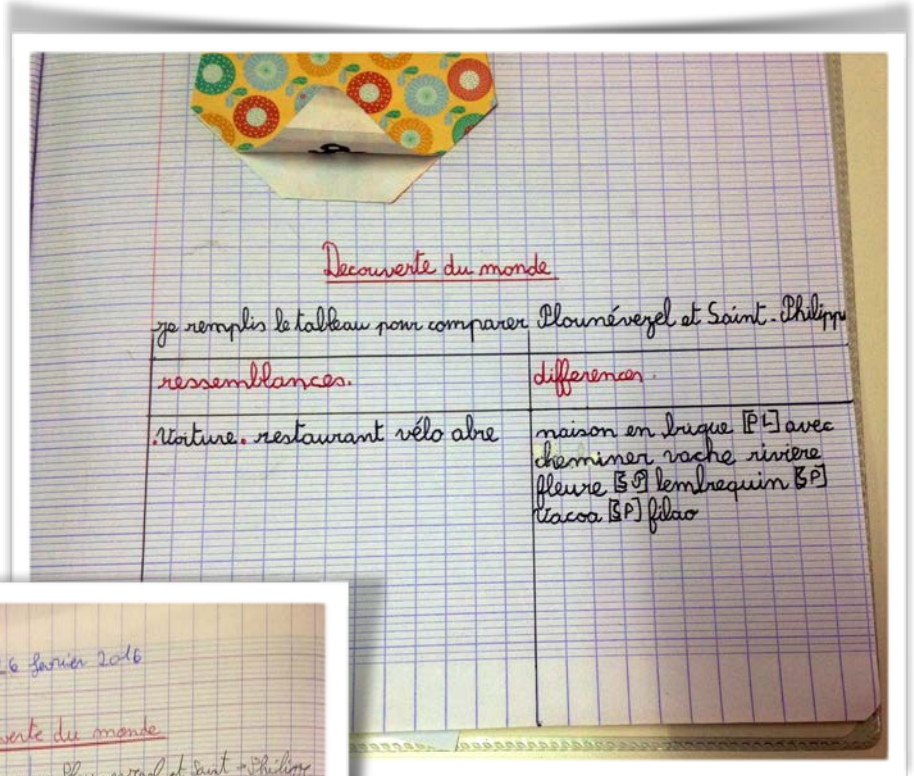 Decouverte du monde
je remplis le tableau pour comparer Plounévezel et Saint-Philippe
ressemblances.
differences.
.voiture. restaurant vélo abre
maison en brique [PL] avec
cheminer vache riviere
fleure [SP] lembrequin [SP]
Vacoa [SP] filao
26 fevrier 2016
verte du monde
et Saint-Philippe